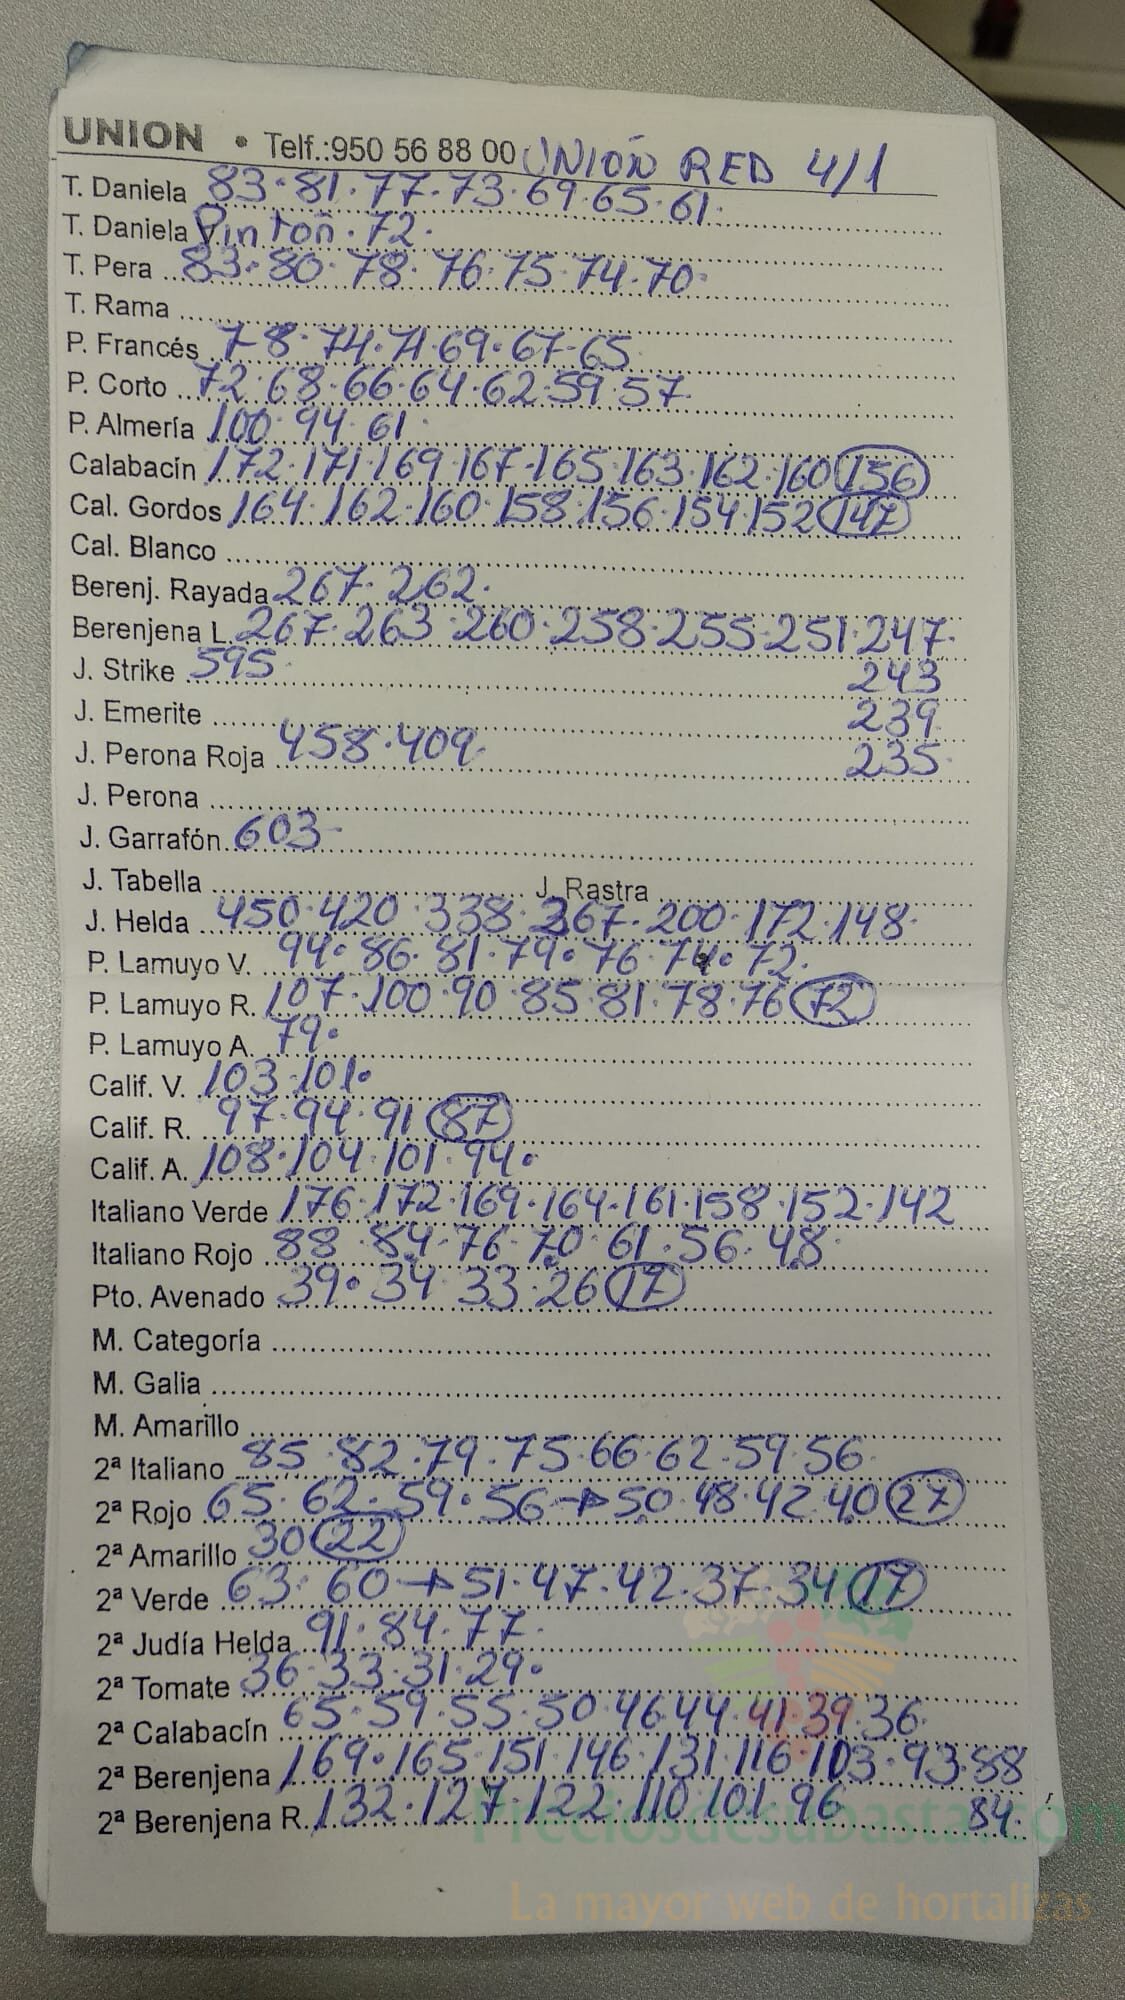 UNION • Telf.:950 56 88 00 UNIÓN RED 4/1
T. Daniela 83·81·77·73·69·65·61·
T. Daniela Pinton·72·
T. Pera 83·80·78·76·75·74·70·
T. Rama
P. Francés 78·74·71·69·67·65
P. Corto 72·68·66·64·62·59·57
P. Almería 100·94·61·
Calabacín 172·171·169·167·165·163·162·160 156
Cal. Gordos 164·162·160·158·156·154·152 147
Cal. Blanco
Berenj. Rayada 267·262·
Berenjena L. 267·263·260·258·255·251·247·
J. Strike 595 243
J. Emerite 239
J. Perona Roja 458·409 235
J. Perona
J. Garrafón 603
J. Tabella J. Rastra
J. Helda 450·420·338·267·200·172·148·
P. Lamuyo V. 94·86·81·79·76·74·72·
P. Lamuyo R. 107·100·90·85·81·78·76 72
P. Lamuyo A. 79·
Calif. V. 103·101·
Calif. R. 97·94·91 87
Calif. A. 108·104·101·94·
Italiano Verde 176·172·169·164·161·158·152·142
Italiano Rojo 88·84·76·70·61·56·48·
Pto. Avenado 39·34·33·26 17
M. Categoría
M. Galia
M. Amarillo
2ª Italiano 85·82·79·75·66·62·59·56
2ª Rojo 65·62·59·56→50·48·42·40 27
2ª Amarillo 30 22
2ª Verde 63·60→51·47·42·37·34 17
2ª Judía Helda 91·84·77·
2ª Tomate 36·33·31·29·
2ª Calabacín 65·59·55·50·46·44·41·39·36·
2ª Berenjena 169·165·151·146·131·116·103·93·88
2ª Berenjena R. 132·127·122·110·101·96 84·
Preciosdesubasta.com
La mayor web de hortalizas